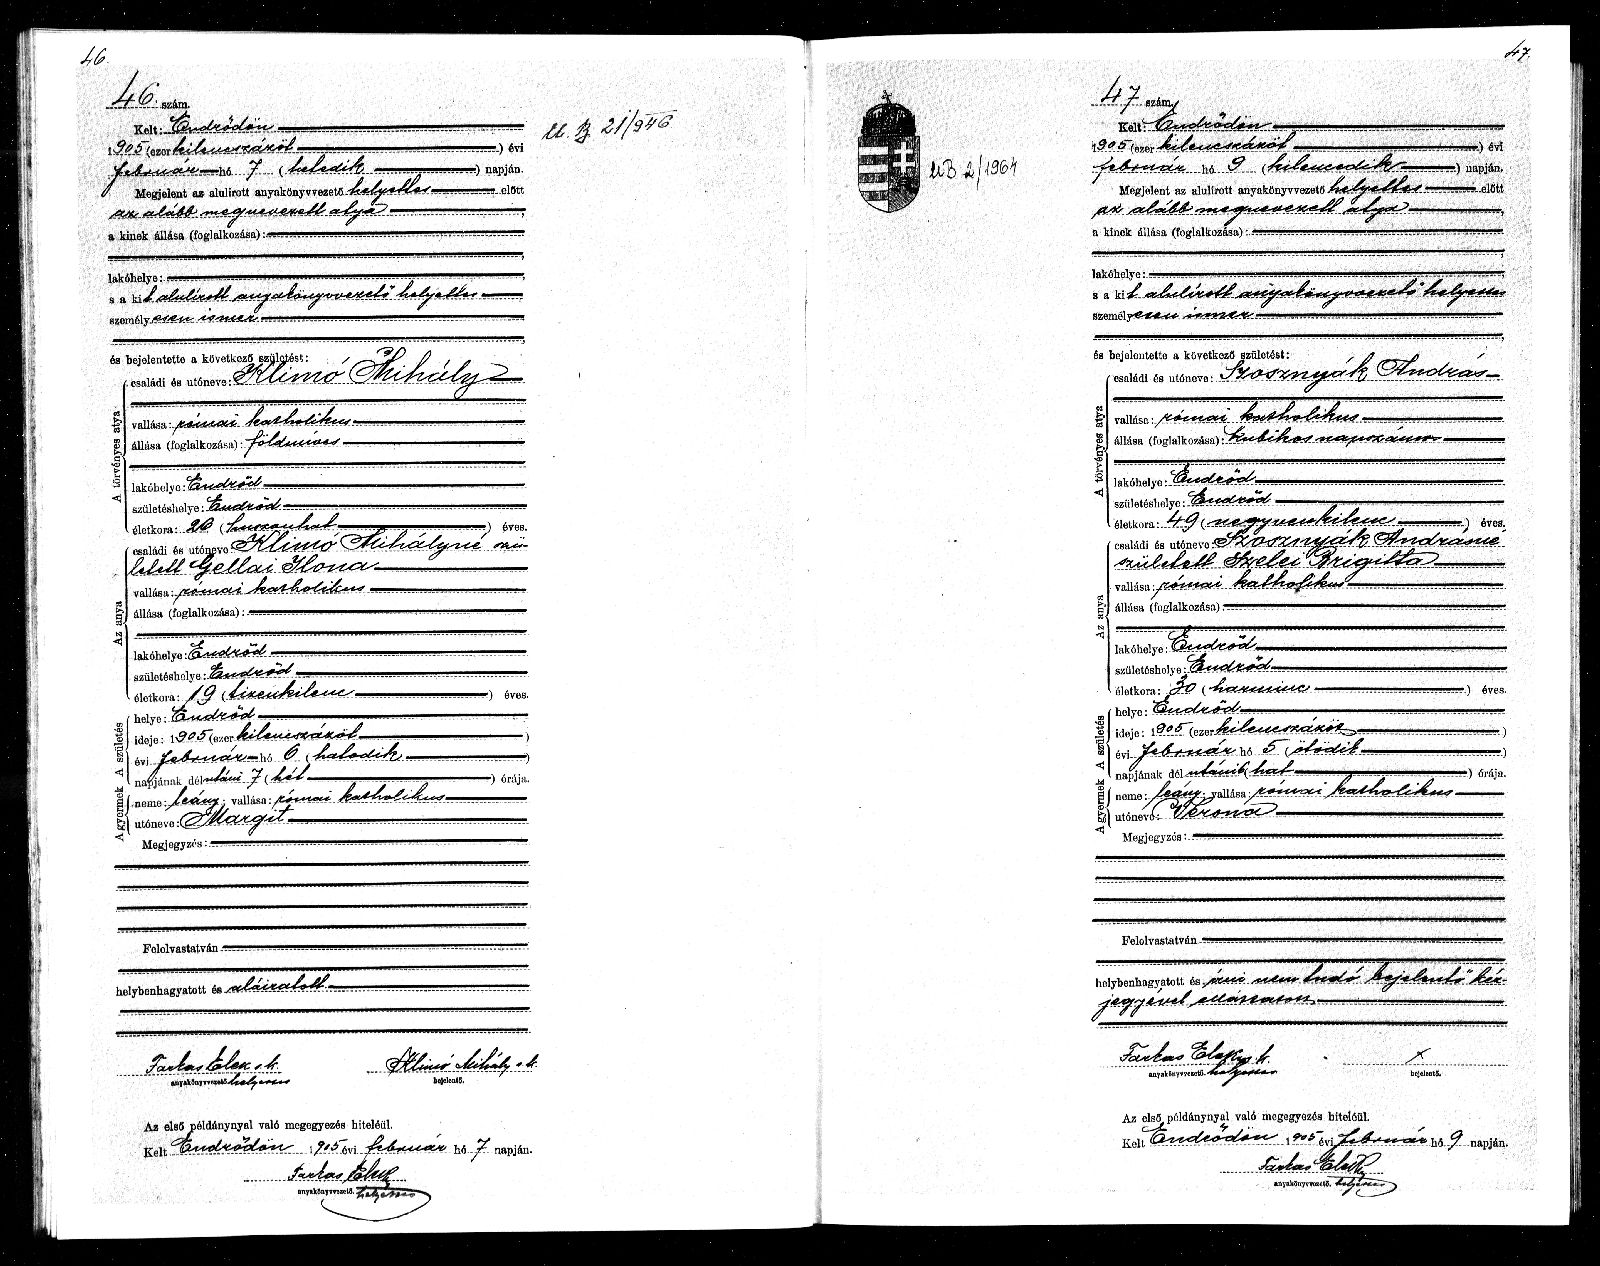 46.
46. szám.
Kelt: Endrődön
1905 (ezer kilencszázöt ) évi
február hó 7 ( hetedik ) napján.
Megjelent az alulirott anyakönyvvezető helyettes előtt
az alább megnevezett atya ,
a kinek állása (foglalkozása):
lakóhelye:
s a kit alulírott anyakönyvvezető helyettes
személyesen ismer
és bejelentette a következő születést:
A törvényes atya
családi és utóneve: Klimó Mihály
vallása: római katholikus
állása (foglalkozása): földmíves
lakóhelye: Endrőd
születéshelye: Endrőd
életkora: 26 ( huszonhat ) éves.
Az anya
családi és utóneve Klimó Mihályné szü-
letett Gellai Ilona
vallása: római katholikus
állása (foglalkozása):
lakóhelye: Endrőd
születéshelye: Endrőd
életkora: 19 ( tizenkilenc ) éves.
A gyermek A születés
helye: Endrőd
ideje: 1905 (ezer kilencszázöt )
évi február hó 6 ( hatodik )
napjának dél utáni 7 ( hét ) órája.
neme: leány; vallása: római katholikus
utóneve: Margit
Megjegyzés:
Felolvastatván
helybenhagyatott és aláíratott
Farkas Elek s. k. Klimó Mihály s. k.
anyakönyvvezető. helyettes bejelentő.
Az első példánynyal való megegyezés hiteléül.
Kelt Endrődön 1905 évi február hó 7 napján.
Farkas Elek
anyakönyvvezető. helyettes
U. B 21/946
47.
47 szám.
UB 2/1964
Kelt: Endrődön
1905 (ezer kilencszázöt ) évi
február hó 9 ( kilencedik ) napján.
Megjelent az alulirott anyakönyvvezető helyettes előtt
az alább megnevezett atya ,
a kinek állása (foglalkozása):
lakóhelye:
s a kit alulírott anyakönyvvezető helyettes
személyesen ismer
és bejelentette a következő születést:
A törvényes atya
családi és utóneve: Szosznyák András
vallása: római katholikus
állása (foglalkozása): kubikos napszámos
lakóhelye: Endrőd
születéshelye: Endrőd
életkora: 49 ( negyvenkilenc ) éves.
Az anya
családi és utóneve: Szosznyák Andrásné
született Szelei Brigitta
vallása: római katholikus
állása (foglalkozása):
lakóhelye: Endrőd
születéshelye: Endrőd
életkora: 30 ( harminc ) éves.
A gyermek A születés
helye: Endrőd
ideje: 1905 (ezer kilencszázöt )
évi február hó 5 ( ötödik )
napjának dél utáni 6 ( hat ) órája.
neme: leány; vallása: római katholikus
utóneve: Verona
Megjegyzés:
Felolvastatván
helybenhagyatott és írni nem tudó bejelentő kéz-
jegyével ellátatott
Farkas Elek s. k. x
anyakönyvvezető. helyettes bejelentő.
Az első példánynyal való megegyezés hiteléül.
Kelt Endrődön 1905 évi február hó 9 napján.
Farkas Elek
anyakönyvvezető. helyettes